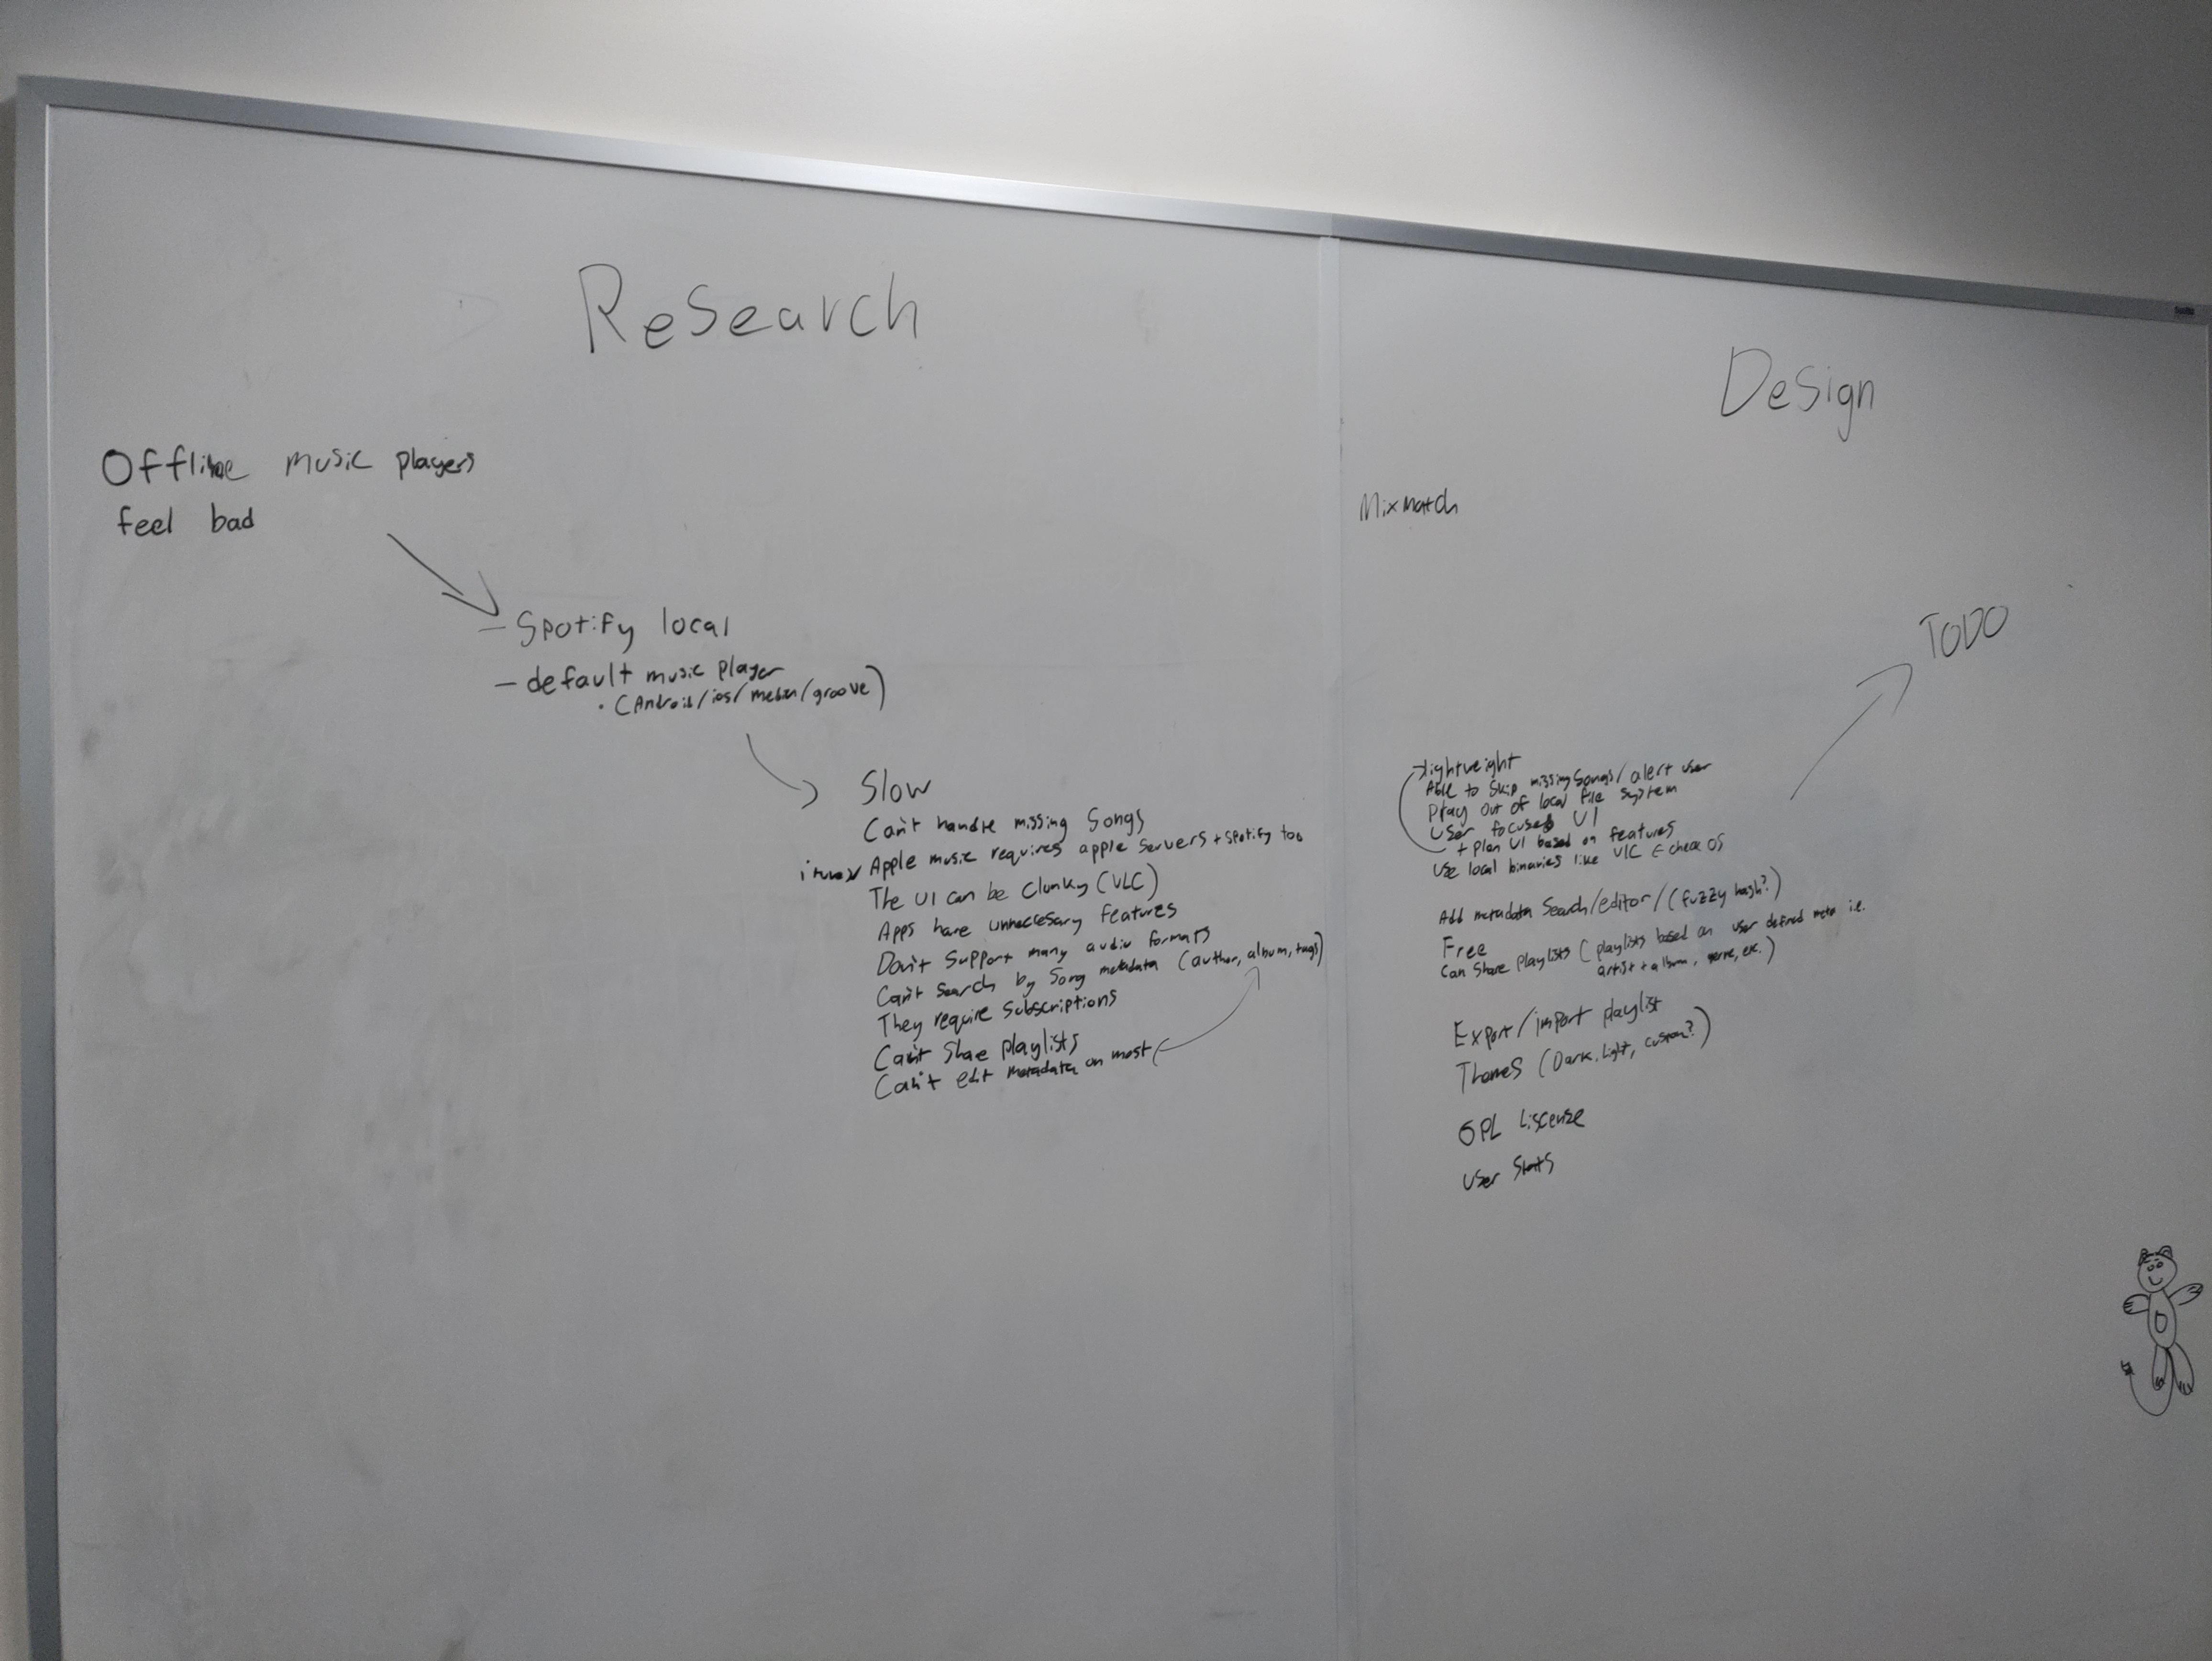 Research
Offline music players
feel bad
- Spotify local
- default music player
• (Android/ios/ /groove)
Slow
Can't handle missing songs
itunes Apple music requires apple servers + spotify too
The UI can be clunky (VLC)
Apps have unneccesary features
Don't support many audio formats
Can't search by song metadata (author, album, tags)
They require subscriptions
Can't share playlists
Can't edit metadata on most
Design
Mixmatch
TODO
lightweight
Able to skip missing songs/alert user
Play out of local file system
User focused UI
+ plan UI based on features
Use local binaries like VLC ← check OS
Add metadata search/editor/(fuzzy hash?)
Free
Can share playlists (playlists based on user defined meta i.e.
artist + album, genre, etc.)
Export/import playlist
Themes (Dark, light, custom?)
GPL Liscense
User stats
D